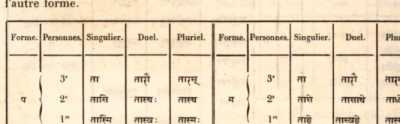 l'autre forme.
Forme. Personnes. Singulier. Duel. Pluriel. Forme. Personnes. Singulier. Duel.
3ᵉ ता तारौ तारस् 3ᵉ ता तारौ
प 2ᵉ तासि तास्थः तास्थ म 2ᵉ तासे तासाथे
1ʳᵉ तास्मि तास्वः तास्मः 1ʳᵉ ताहे तास्वहे